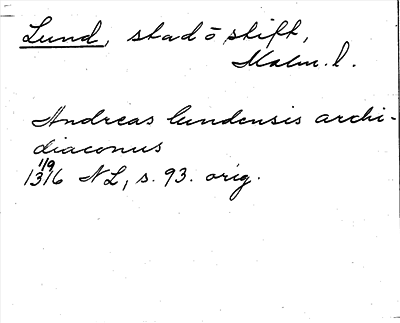 Lund, stad o stift,
Malm. l.
Andreas lundensis archi-
diaconus
1316 11/9 NL, s. 93. orig.